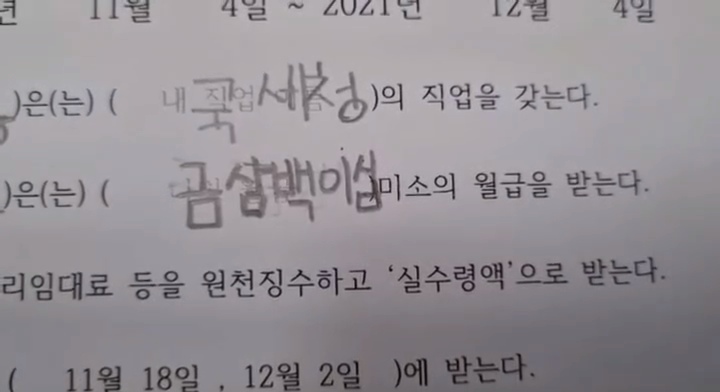 11월 4일 ~ 2021년 12월 4일
)은(는) ( 국세청 )의 직업을 갖는다.
)은(는) ( 금삼백이십 )미소의 월급을 받는다.
리임대료 등을 원천징수하고 '실수령액'으로 받는다.
( 11월 18일 , 12월 2일 )에 받는다.